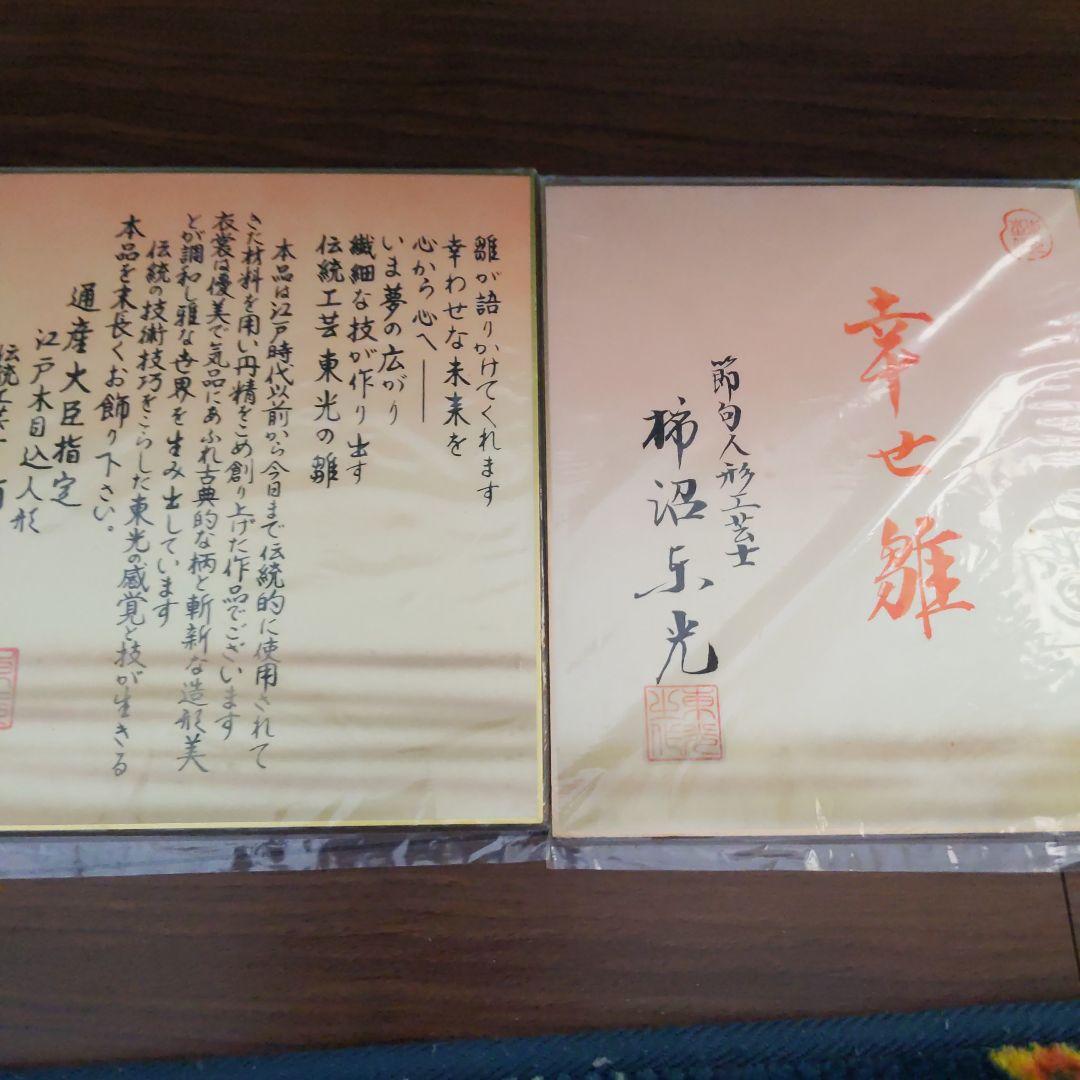 幸せ雛
節句人形工芸士
柿沼东光
東光
之作
雛が語りかけてくれます
幸わせな未来を
心から心へ――
いま夢の広がり
繊細な技が作り出す
伝統工芸東光の雛
本品は江戸時代以前から今日まで伝統的に使用されて
きた材料を用い丹精をこめ創り上げた作品でございます
衣裳は優美で気品にあふれ古典的な柄と斬新な造形美
とが調和し雅な世界を生み出しています
伝統の技術技巧をこらした東光の感覚と技が生きる
本品を末長くお飾り下さい。
通産大臣指定
江戸木目込人形
伝統工芸